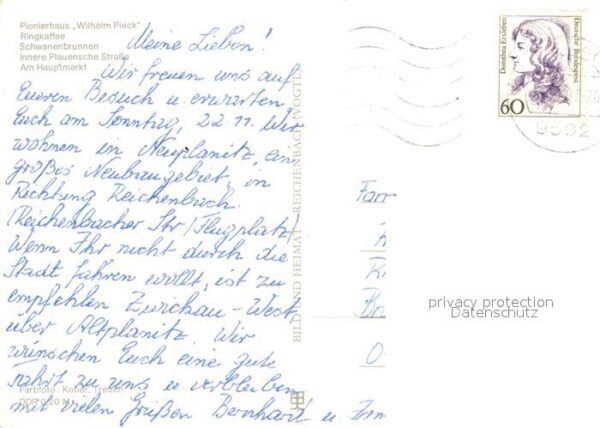 Pionierhaus „Wilhelm Pieck"
Ringkaffee
Schwanenbrunnen
Innere Plauensche Straße
Am Hauptmarkt
Meine Lieben!
Wir freuen uns auf
Eueren Besuch u. erwarten
Euch am Sonntag, 22.11. Wir
wohnen in Neuplanitz, ein
großes Neubaugebiet, in
Richtung Reichenbach.
(Reichenbacher Str./Flugplatz)
Wenn Ihr nicht durch die
Stadt fahren wollt, ist zu
empfehlen Zwickau-West,
über Altplanitz. Wir
wünschen Euch eine gute
Fahrt zu uns u. verbleiben
mit vielen Grüßen Bernhard u.
Farbfoto: Kober, Treuen
DDR 0,20 M
BILD UND HEIMAT REICHENBACH (VOGTL
Dorothea Erxleben
Deutsche Bundespost
60
9502
Fam
privacy protection
Datenschutz